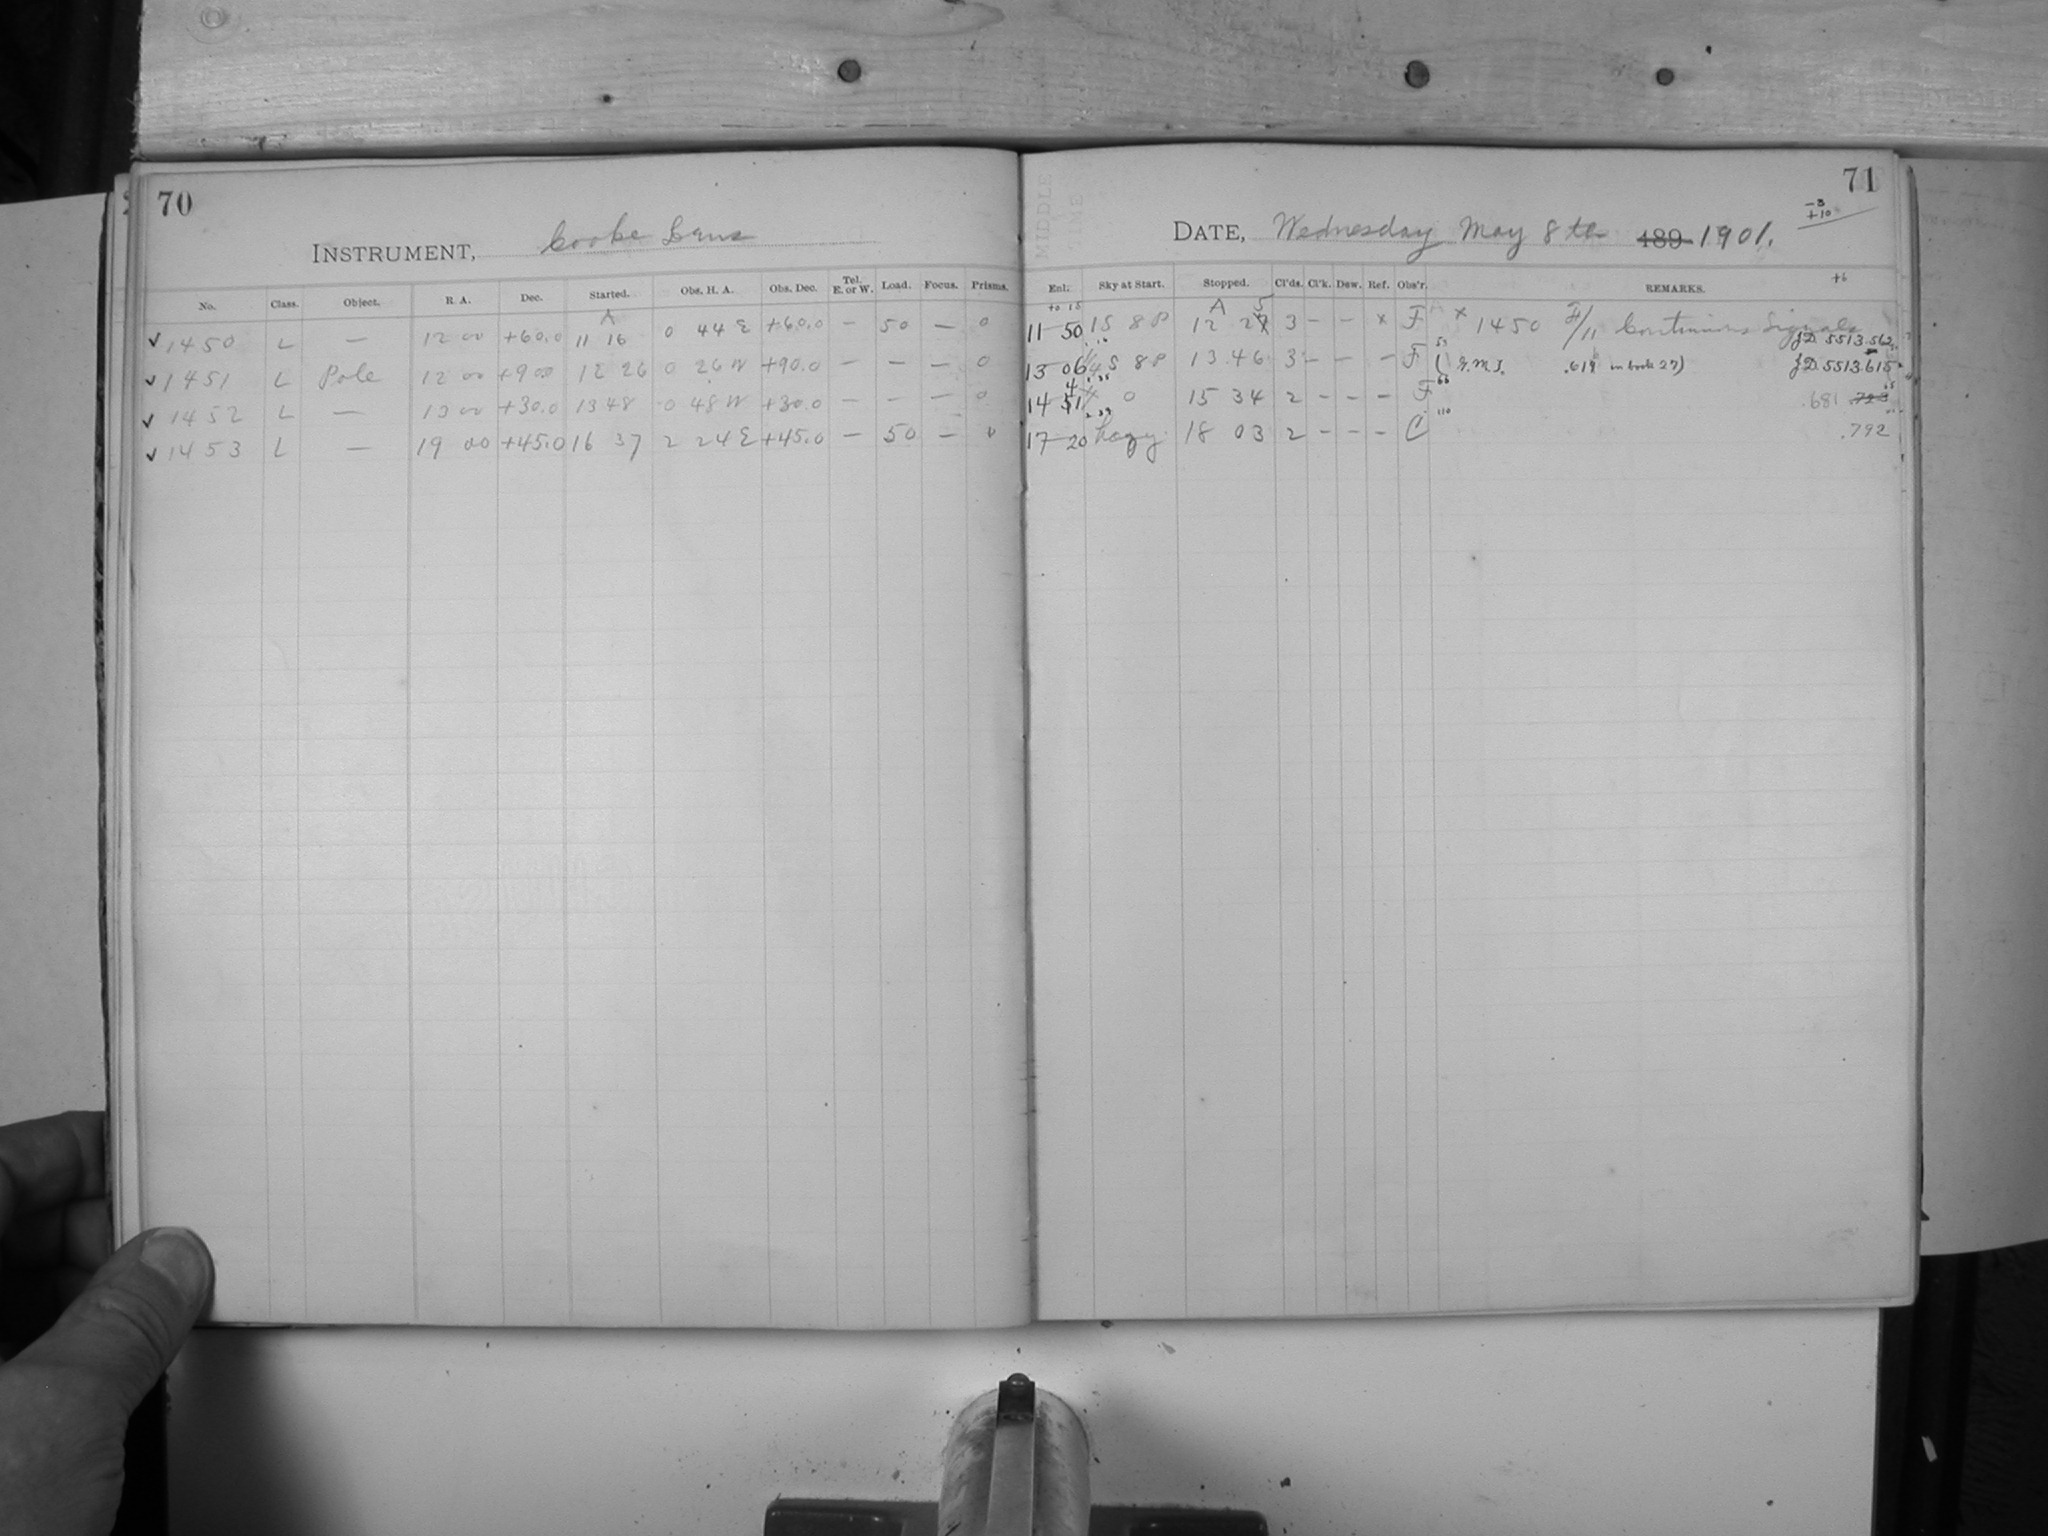 70
INSTRUMENT, Cooke Lens
No. Class. Object. R. A. Dec. Started. Obs. H. A. Obs. Dec. Tel. E. or W. Load. Focus. Prisms.
A
✓ 1450 L — 12 00 +60.0 11 16 0 44 E +60.0 — 50 — 0
✓ 1451 L Pole 12 00 +90.0 12 26 0 26 W +90.0 — — — 0
✓ 1452 L — 13 00 +30.0 13 48 0 48 W +30.0 — — — 0
✓ 1453 L — 19 00 +45.0 16 37 2 24 E +45.0 — 50 —
71
-3
+10
DATE, Wednesday May 8th 189 1901.
+6
Ent. Sky at Start. Stopped. Cl'ds. Cl'k. Dew. Ref. Obs'r. REMARKS.
11 50 15 8P 12 2 3 - - x F x 1450 Continuous Signals
J.D. 5513.562
13 06 8P 13 46 3 - - - F (G.M.T. .619 in book 27) J.D. 5513.615
14 0 15 34 2 - - - F .681
17 20 hazy 18 03 2 - - - C .792